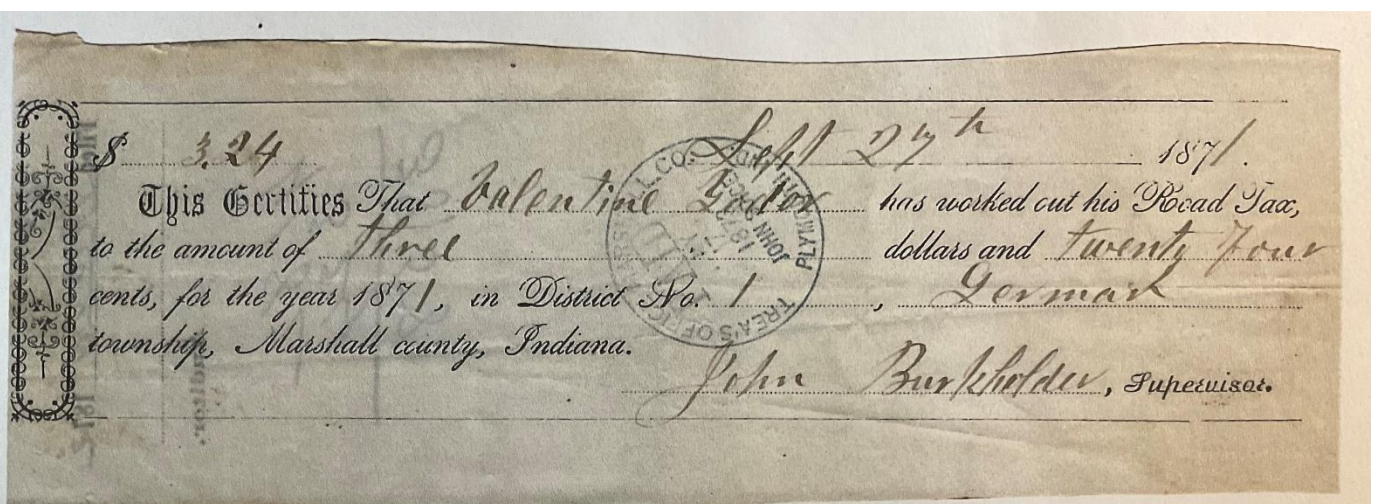 $ 3.24 Sept 27th 1871.
This Certifies That Valentine has worked out his Road Tax,
to the amount of three dollars and twenty four
cents, for the year 1871, in District No. 1, German
township, Marshall county, Indiana.
John Burkholder, Supervisor.
TREAS OFFICE MARSHALL CO.
PLYMOUTH IND
JOHN
Auditor.